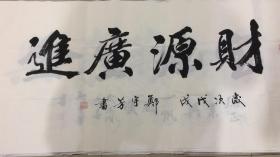 財源廣進
歲次戊戌
鄭宇芳書